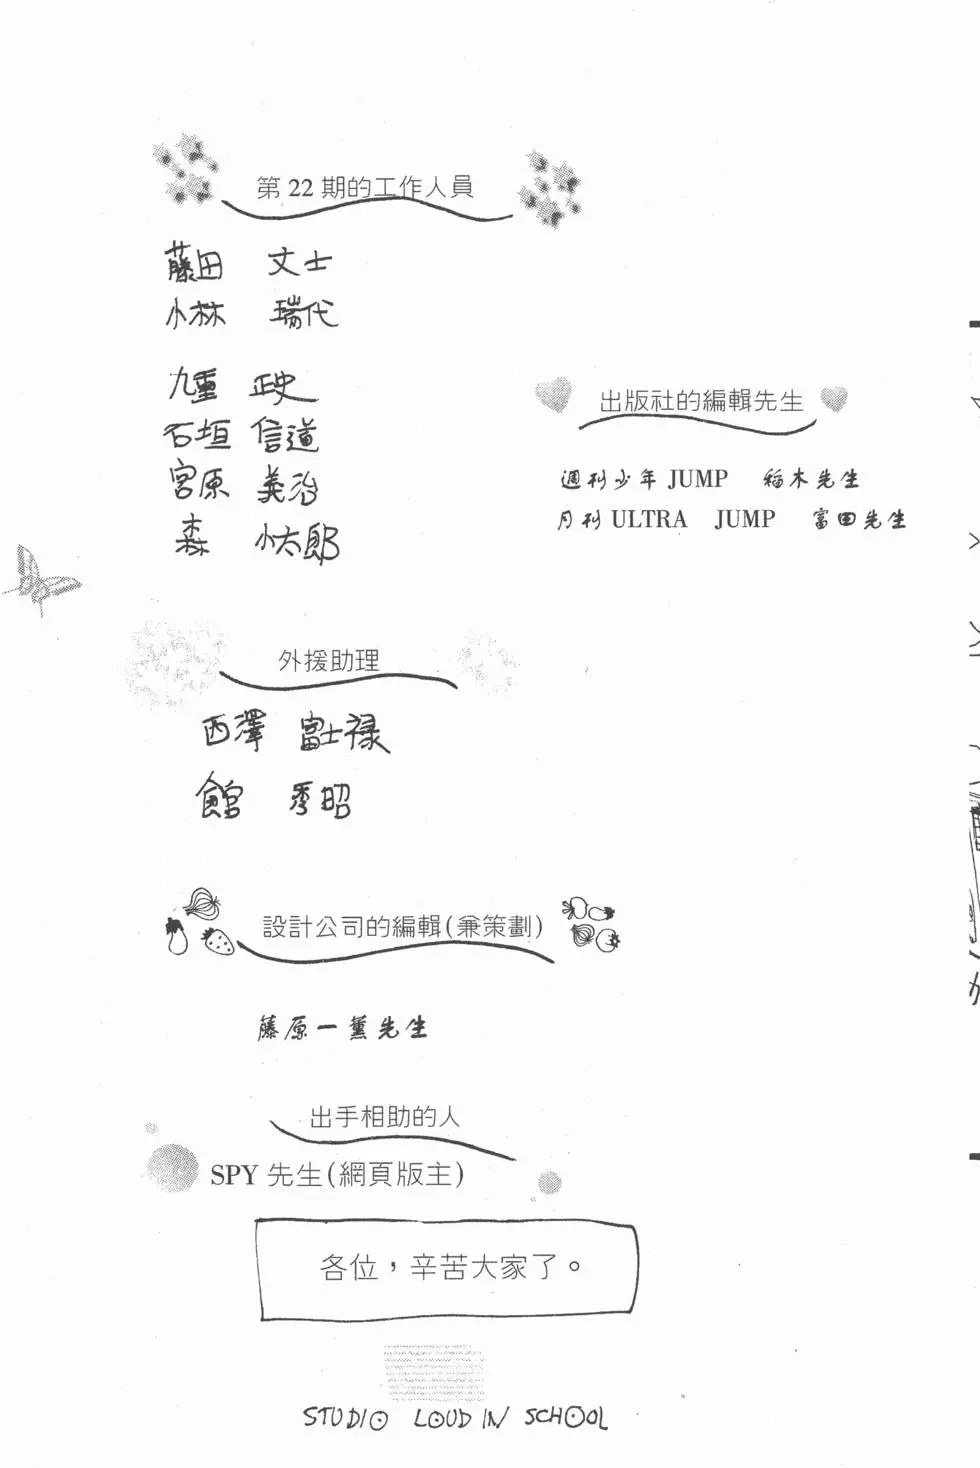 第 22 期的工作人員
藤田 丈士
小林 瑞代
九重 政史
石垣 信道
宮原 義治
森 小太郎
出版社的編輯先生
週刊少年 JUMP 稻木先生
月刊 ULTRA JUMP 富田先生
外援助理
西澤 富士禄
館 秀昭
設計公司的編輯(兼策劃)
藤原一薰先生
出手相助的人
SPY 先生(網頁版主)
各位，辛苦大家了。
STUDIO LOUD IN SCHOOL